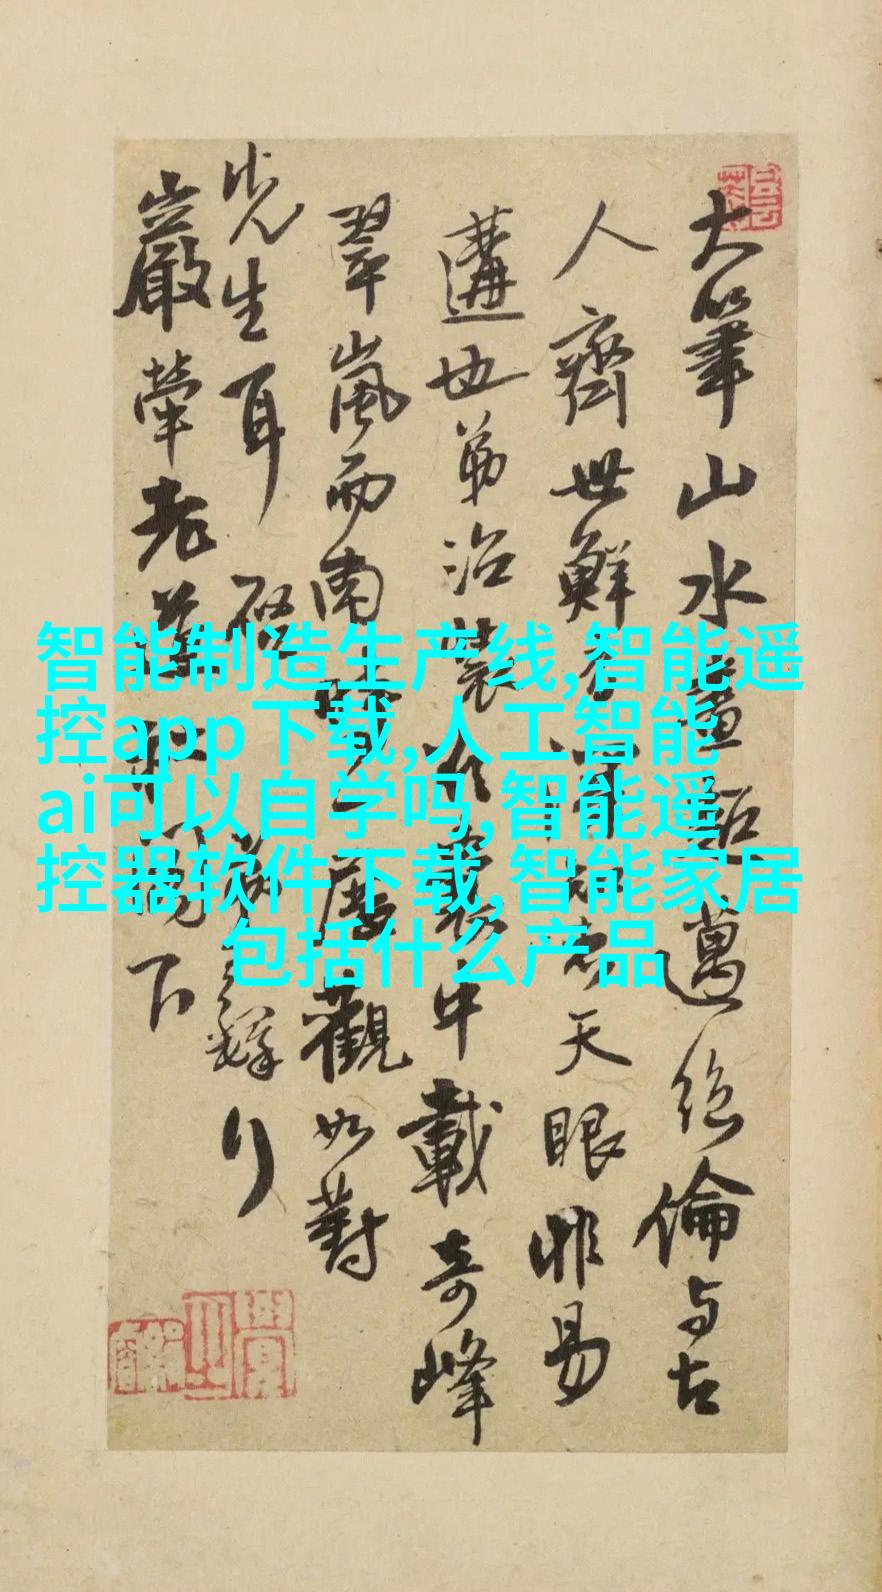 大筆山水畫超邁絕倫与古
人齊世鮮天眼非易
遘也弟治裝行囊中載奇峰
翠嵐而南時一展觀如對
先生耳
嚴犖老
智能制造生产线,智能遥
控app下载,人工智能
ai可以自学吗,智能遥
控器软件下载,智能家居
包括什么产品